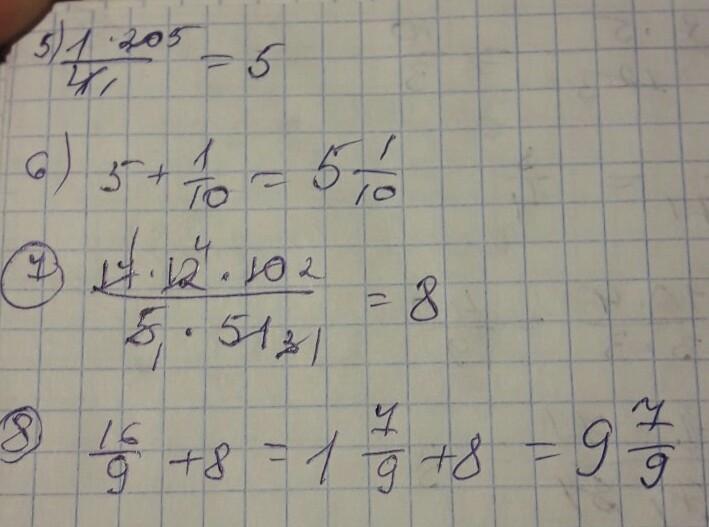 5) 1 · 205 / 41 1 = 5
6) 5 + 1/10 = 5 1/10
7 17 1 · 12 4 · 10 2 / 5 1 · 51 3 1 = 8
8 16/9 + 8 = 1 7/9 + 8 = 9 7/9